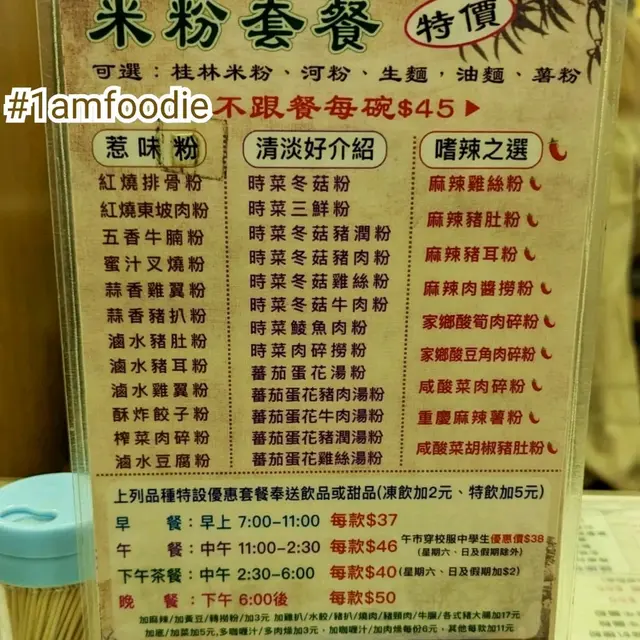 米粉套餐 特價
可選：桂林米粉、河粉、生麵，油麵、薯粉
#1amfoodie
不跟餐每碗$45▶
惹味粉
紅燒排骨粉
紅燒東坡肉粉
五香牛腩粉
蜜汁叉燒粉
蒜香雞翼粉
蒜香豬扒粉
滷水豬肚粉
滷水豬耳粉
滷水雞翼粉
酥炸餃子粉
榨菜肉碎粉
滷水豆腐粉
清淡好介紹
時菜冬菇粉
時菜三鮮粉
時菜冬菇豬潤粉
時菜冬菇豬肉粉
時菜冬菇雞絲粉
時菜冬菇牛肉粉
時菜鯪魚肉粉
時菜肉碎撈粉
蕃茄蛋花湯粉
蕃茄蛋花豬肉湯粉
蕃茄蛋花牛肉湯粉
蕃茄蛋花豬潤湯粉
蕃茄蛋花雞絲湯粉
嗜辣之選
麻辣雞絲粉
麻辣豬肚粉
麻辣豬耳粉
麻辣肉醬撈粉
家鄉酸筍肉碎粉
家鄉酸豆角肉碎粉
咸酸菜肉碎粉
重慶麻辣薯粉
咸酸菜胡椒豬肚粉
上列品種特設優惠套餐奉送飲品或甜品(凍飲加2元、特飲加5元)
早 餐：早上 7:00-11:00 每款$37
午 餐：中午 11:00-2:30 每款$46 午市穿校服中學生優惠價$38
(星期六、日及假期除外)
下午茶餐：中午 2:30-6:00 每款$40(星期六、日及假期加$2)
晚 餐：下午 6:00後 每款$50
加麻辣/加黃豆/轉撈粉/加3元 加雞扒/水餃/豬扒/燒肉/豬頸肉/牛腩/各式豬大腸加17元
加底/加菜加5元,多咖喱汁/多肉燥加3元，加咖喱汁/加肉燥每份6元，其他每款加11元